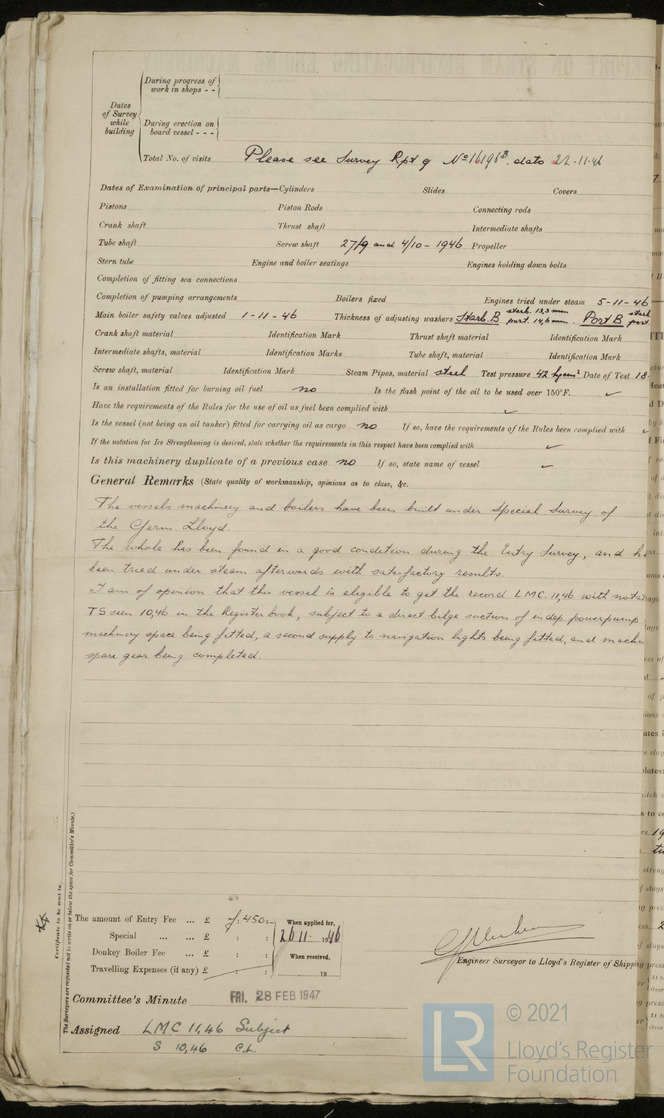 During progress of
work in shops - -
Dates
of Survey
while
building
During erection on
board vessel - - -
Total No. of visits Please see Survey Rpt 9 No 16196B. dato 22-11-46
Dates of Examination of principal parts—Cylinders Slides Covers
Pistons Piston Rods Connecting rods
Crank shaft Thrust shaft Intermediate shafts
Tube shaft Screw shaft 27/9 and 4/10 - 1946 Propeller
Stern tube Engine and boiler seatings Engines holding down bolts
Completion of fitting sea connections
Completion of pumping arrangements Boilers fixed Engines tried under steam 5-11-46
Main boiler safety valves adjusted 1-11-46 Thickness of adjusting washers Starb. B starb. 13,3 mm port. 14,3 mm Port B starb port.
Crank shaft material Identification Mark Thrust shaft material Identification Mark
Intermediate shafts, material Identification Marks Tube shaft, material Identification Mark
Screw shaft, material Identification Mark Steam Pipes, material steel Test pressure 42 kg/cm² Date of Test 18
Is an installation fitted for burning oil fuel no Is the flash point of the oil to be used over 150°F. ✓
Have the requirements of the Rules for the use of oil as fuel been complied with ✓
Is the vessel (not being an oil tanker) fitted for carrying oil as cargo no If so, have the requirements of the Rules been complied with ✓
If the notation for Ice Strengthening is desired, state whether the requirements in this respect have been complied with ✓
Is this machinery duplicate of a previous case no If so, state name of vessel ✓
General Remarks (State quality of workmanship, opinions as to class, &c.
The vessels machinery and boilers have been built under Special Survey of
the Germ. Lloyd.
The whole has been found in a good condition during the Entry Survey, and h
been tried under steam afterwards with satisfactory results.
I am of opinion that this vessel is eligible to get the record LMC. 11,46 with nota
TS seen 10,46 in the Register book, subject to a direct bilge suction of indep. powerpump
machinery space being fitted, a second supply to navigation lights being fitted, and mach
spare gear being completed.
The amount of Entry Fee ... £ f. 450:-
Special ... ... £ : :
Donkey Boiler Fee ... £ : :
Travelling Expenses (if any) £ : :
When applied for,
26 11 - 1946
When received,
19
Engineer Surveyor to Lloyd's Register of Shipping
Committee's Minute FRI. 28 FEB 1947
Assigned LMC 11,46 Subject
S 10,46 C.L.
Certificate to be sent to
The Surveyors are requested not to write on or below the space for Committee's Minute.)
LR
© 2021
Lloyd's Register
Foundation